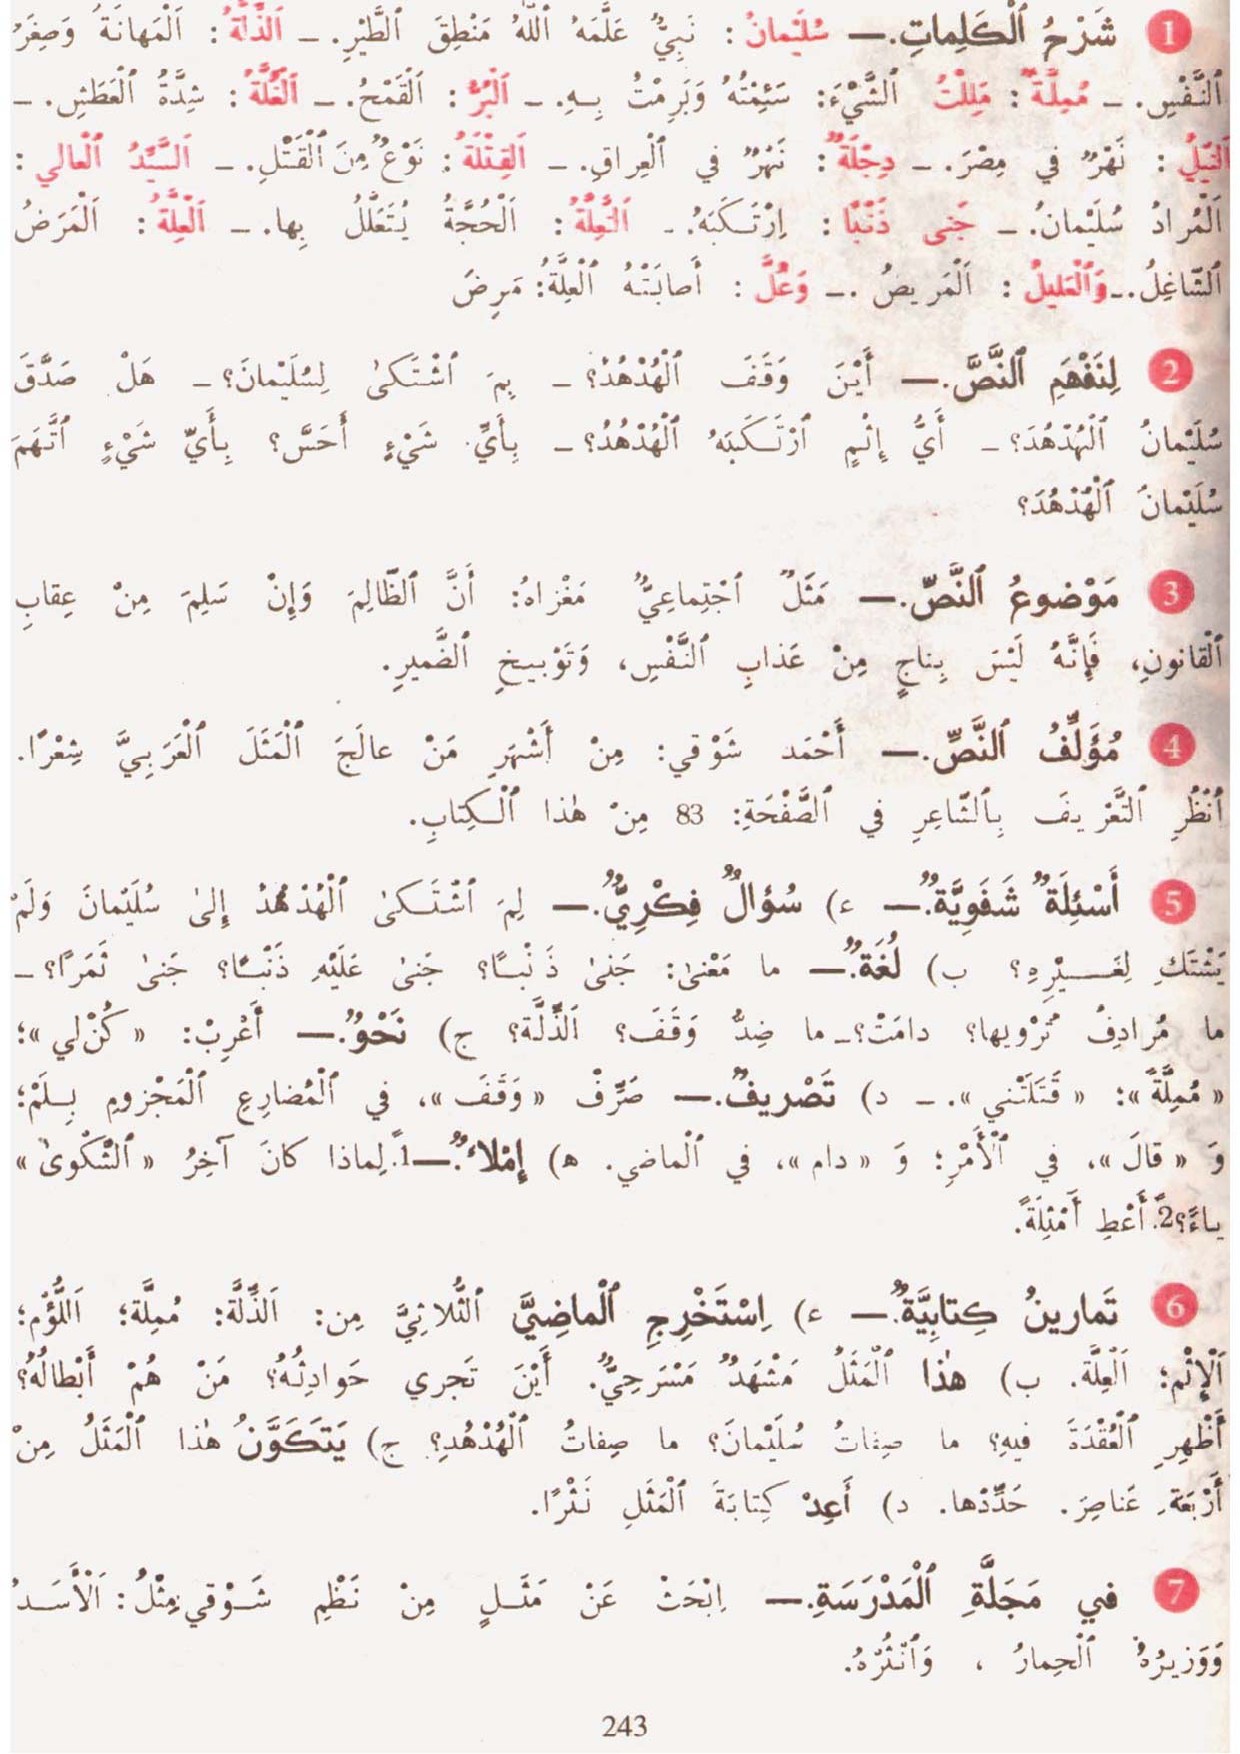 1 شَرْحُ ٱلْكَلِماتِ.— سُلَيْمانُ: نَبِيٌّ عَلَّمَهُ ٱللّٰهُ مَنْطِقَ ٱلطَّيْرِ. – اَلذِّلَّةُ: اَلْمَهانَةُ وَصِغَرُ
ٱلنَّفْسِ. – مُمِلَّةً: مَلِلْتُ ٱلشَّيْءَ: سَئِمْتُهُ وَبَرِمْتُ بِهِ. – اَلْبُرُّ: اَلْقَمْحُ. – اَلْغُلَّةُ: شِدَّةُ ٱلْعَطَشِ. –
اَلنّيلُ: نَهْرٌ في مِصْرَ. – دِجْلَةُ: نَهْرٌ في ٱلْعِراقِ. – اَلْقِتْلَةُ: نَوْعٌ مِنَ ٱلْقَتْلِ. – اَلسَّيِّدُ ٱلْعالي:
اَلْمُرادُ سُلَيْمانُ. – جَنى ذَنْبًا: اِرْتَكَبَهُ. – اَلْعِلَّةُ: اَلْحُجَّةُ يُتَعَلَّلُ بِها. – اَلْعِلَّةُ: اَلْمَرَضُ
ٱلشّاغِلُ. – وَٱلْعَليلُ: اَلْمَريضُ. – وَعُلَّ: أَصابَتْهُ ٱلْعِلَّةُ: مَرِضَ
2 لِنَفْهَمِ ٱلنَّصَّ.— أَيْنَ وَقَفَ ٱلْهُدْهُدُ؟ – بِمَ ٱشْتَكىٰ لِسُلَيْمانَ؟ – هَلْ صَدَّقَ
سُلَيْمانُ ٱلْهُدْهُدَ؟ – أَيَّ إِثْمٍ ٱرْتَكَبَهُ ٱلْهُدْهُدُ؟ – بِأَيِّ شَيْءٍ أَحَسَّ؟ بِأَيِّ شَيْءٍ ٱتَّهَمَ
سُلَيْمانُ ٱلْهُدْهُدَ؟
3 مَوْضوعُ ٱلنَّصِّ.— مَثَلٌ ٱجْتِماعِيٌّ مَغْزاهُ: أَنَّ ٱلظّالِمَ وَإِنْ سَلِمَ مِنْ عِقابِ
ٱلْقانونِ، فَإِنَّهُ لَيْسَ بِناجٍ مِنْ عَذابِ ٱلنَّفْسِ، وَتَوْبيخِ ٱلضَّميرِ.
4 مُؤَلِّفُ ٱلنَّصِّ.— أَحْمَد شَوْقي: مِنْ أَشْهَرِ مَنْ عالَجَ ٱلْمَثَلَ ٱلْعَرَبِيَّ شِعْرًا.
اُنْظُرِ ٱلتَّعْريفَ بِٱلشّاعِرِ في ٱلصَّفْحَةِ: 83 مِنْ هٰذا ٱلْكِتابِ.
5 أَسْئِلَةٌ شَفَوِيَّةٌ.— ء) سُؤالٌ فِكْرِيٌّ.— لِمَ ٱشْتَكىٰ ٱلْهُدْهُدُ إِلىٰ سُلَيْمانَ وَلَمْ
يَشْتَكِ لِغَيْرِهِ؟ ب) لُغَةٌ.— ما مَعْنىٰ: جَنىٰ ذَنْبًا؟ جَنىٰ عَلَيْهِ ذَنْبًا؟ جَنىٰ ثَمَرًا؟ –
ما مُرادِفُ تُرْويها؟ دامَتْ؟ – ما ضِدُّ وَقَفَ؟ اَلذِّلَّةُ؟ ج) نَحْوٌ.— أَعْرِبْ: « كُنْ لي »؛
« مُمِلَّةً »: « قَتَلَتْني ». – د) تَصْريفٌ.— صَرِّفْ « وَقَفَ »، في ٱلْمُضارِعِ ٱلْمَجْزومِ بِلَمْ؛
وَ « قالَ »، في ٱلْأَمْرِ؛ وَ « دام »، في ٱلْماضي. ه) إِمْلاءٌ.— 1. لِماذا كانَ آخِرُ « ٱلشَّكْوىٰ »
ياءً؟ 2. أَعْطِ أَمْثِلَةً.
6 تَمارينُ كِتابِيَّةٌ.— ء) اِسْتَخْرِجِ ٱلْماضِيَّ ٱلثُّلاثِيَّ مِن: اَلذِّلَّة: مُمِلَّة؛ اَللُّؤْم؛
اَلْإِثْم؛ اَلْعِلَّة. ب) هٰذا ٱلْمَثَلُ مَشْهَدٌ مَسْرَحِيٌّ. أَيْنَ تَجري حَوادِثُهُ؟ مَنْ هُمْ أَبْطالُهُ؟
أَظْهِرِ ٱلْعُقْدَةَ فيهِ؟ ما صِفاتُ سُلَيْمانَ؟ ما صِفاتُ ٱلْهُدْهُدِ؟ ج) يَتَكَوَّنُ هٰذا ٱلْمَثَلُ مِنْ
أَرْبَعَةِ عَناصِرَ. حَدِّدْها. د) أَعِدْ كِتابَةَ ٱلْمَثَلِ نَثْرًا.
7 في مَجَلَّةِ ٱلْمَدْرَسَةِ.— اِبْحَثْ عَنْ مَثَلٍ مِنْ نَظْمِ شَوْقي مِثْلُ: اَلْأَسَدُ
وَوَزيرُهُ ٱلْحِمارُ، وَٱنْثُرْهُ.
243